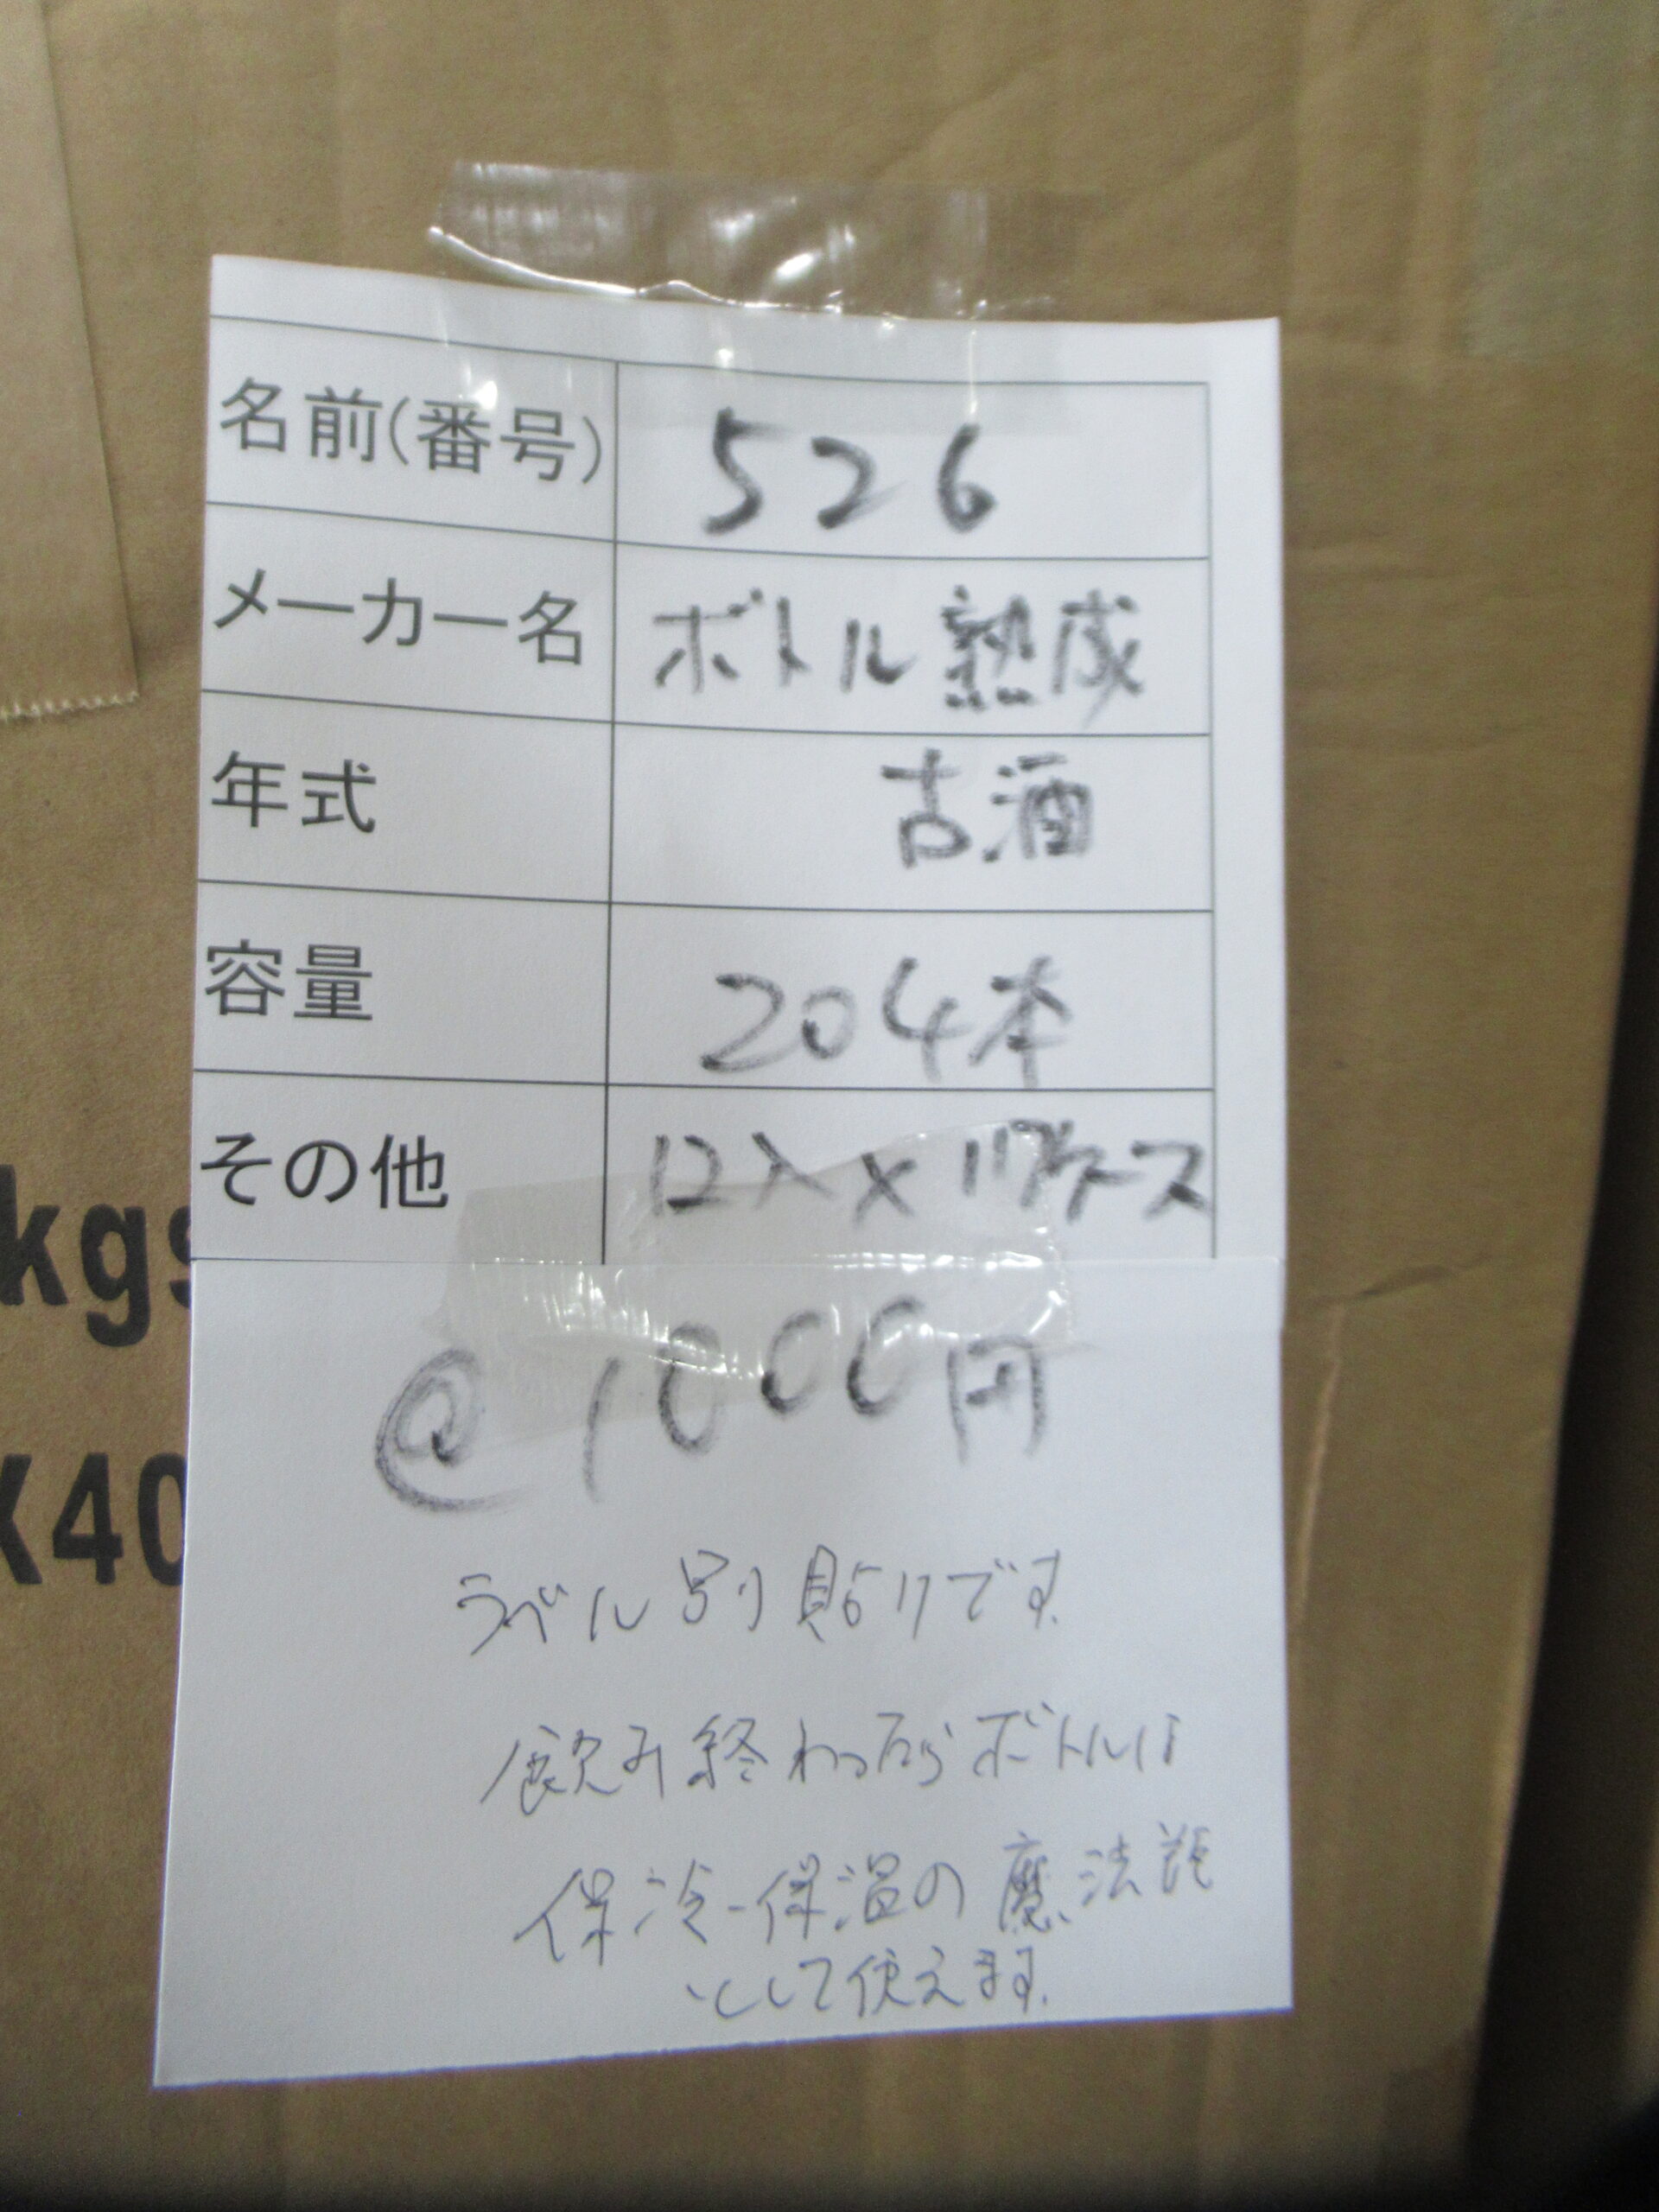 名前(番号) 526
メーカー名 ボトル熟成
年式 古酒
容量 204本
その他 12入×17ケース
@1000円
ラベル別り貼りです
飲み終わったらボトルは
保冷-保温の魔法瓶
として使えます.
kgs
X40